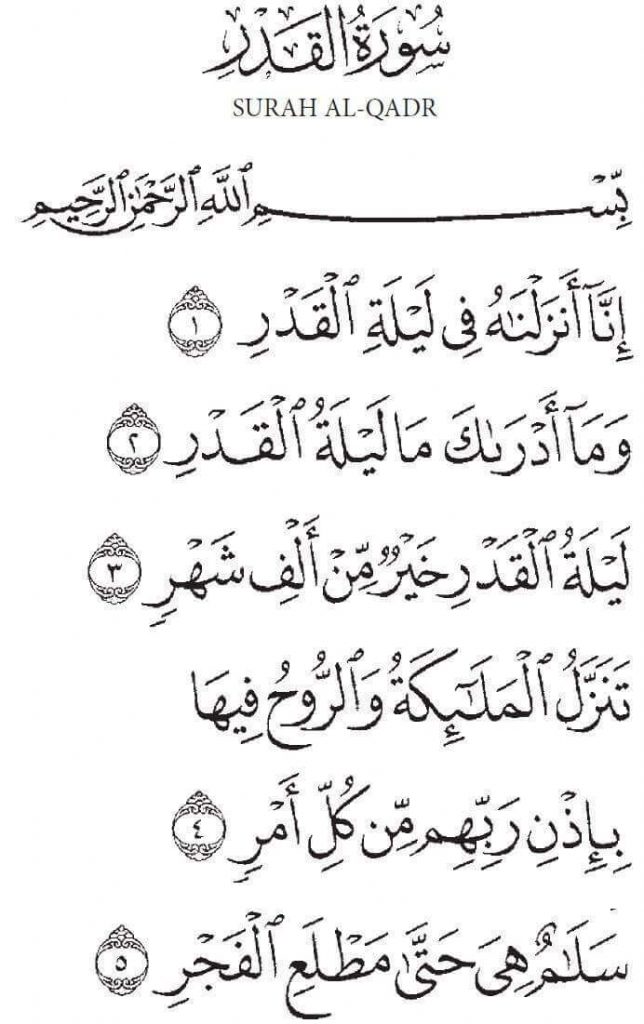 سُورَةُ القَدْرِ
SURAH AL-QADR
بِّسْمِ ٱللَّهِ ٱلرَّحْمَٰنِ ٱلرَّحِيمِ
إِنَّآ أَنزَلْنَٰهُ فِى لَيْلَةِ ٱلْقَدْرِ ١
وَمَآ أَدْرَىٰكَ مَا لَيْلَةُ ٱلْقَدْرِ ٢
لَيْلَةُ ٱلْقَدْرِ خَيْرٌ مِّنْ أَلْفِ شَهْرٍ ٣
تَنَزَّلُ ٱلْمَلَٰٓئِكَةُ وَٱلرُّوحُ فِيهَا
بِإِذْنِ رَبِّهِم مِّن كُلِّ أَمْرٍ ٤
سَلَٰمٌ هِىَ حَتَّىٰ مَطْلَعِ ٱلْفَجْرِ ٥